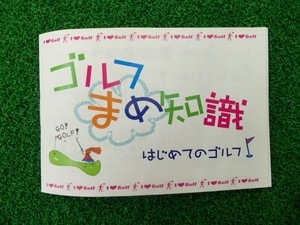 I ❤ Golf I ❤ Golf I ❤ Golf I ❤ Golf I ❤ Golf
ゴルフ
まめ知識
GO!
GOLF!
はじめてのゴルフ
I ❤ Golf I ❤ Golf I ❤ Golf I ❤ Golf I ❤ Golf